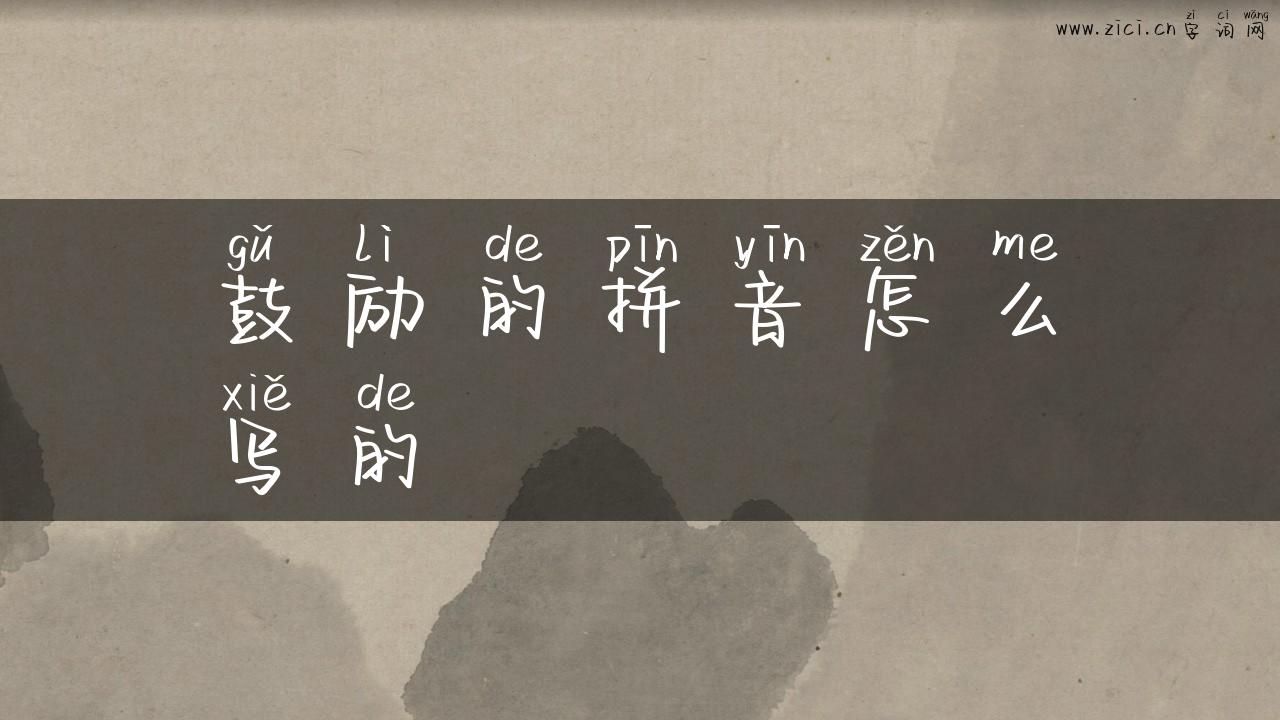 zì cí wǎng
www.zici.cn 字 词 网
gǔ lì de pīn yīn zěn me
鼓 励 的 拼 音 怎 么
xiě de
写 的